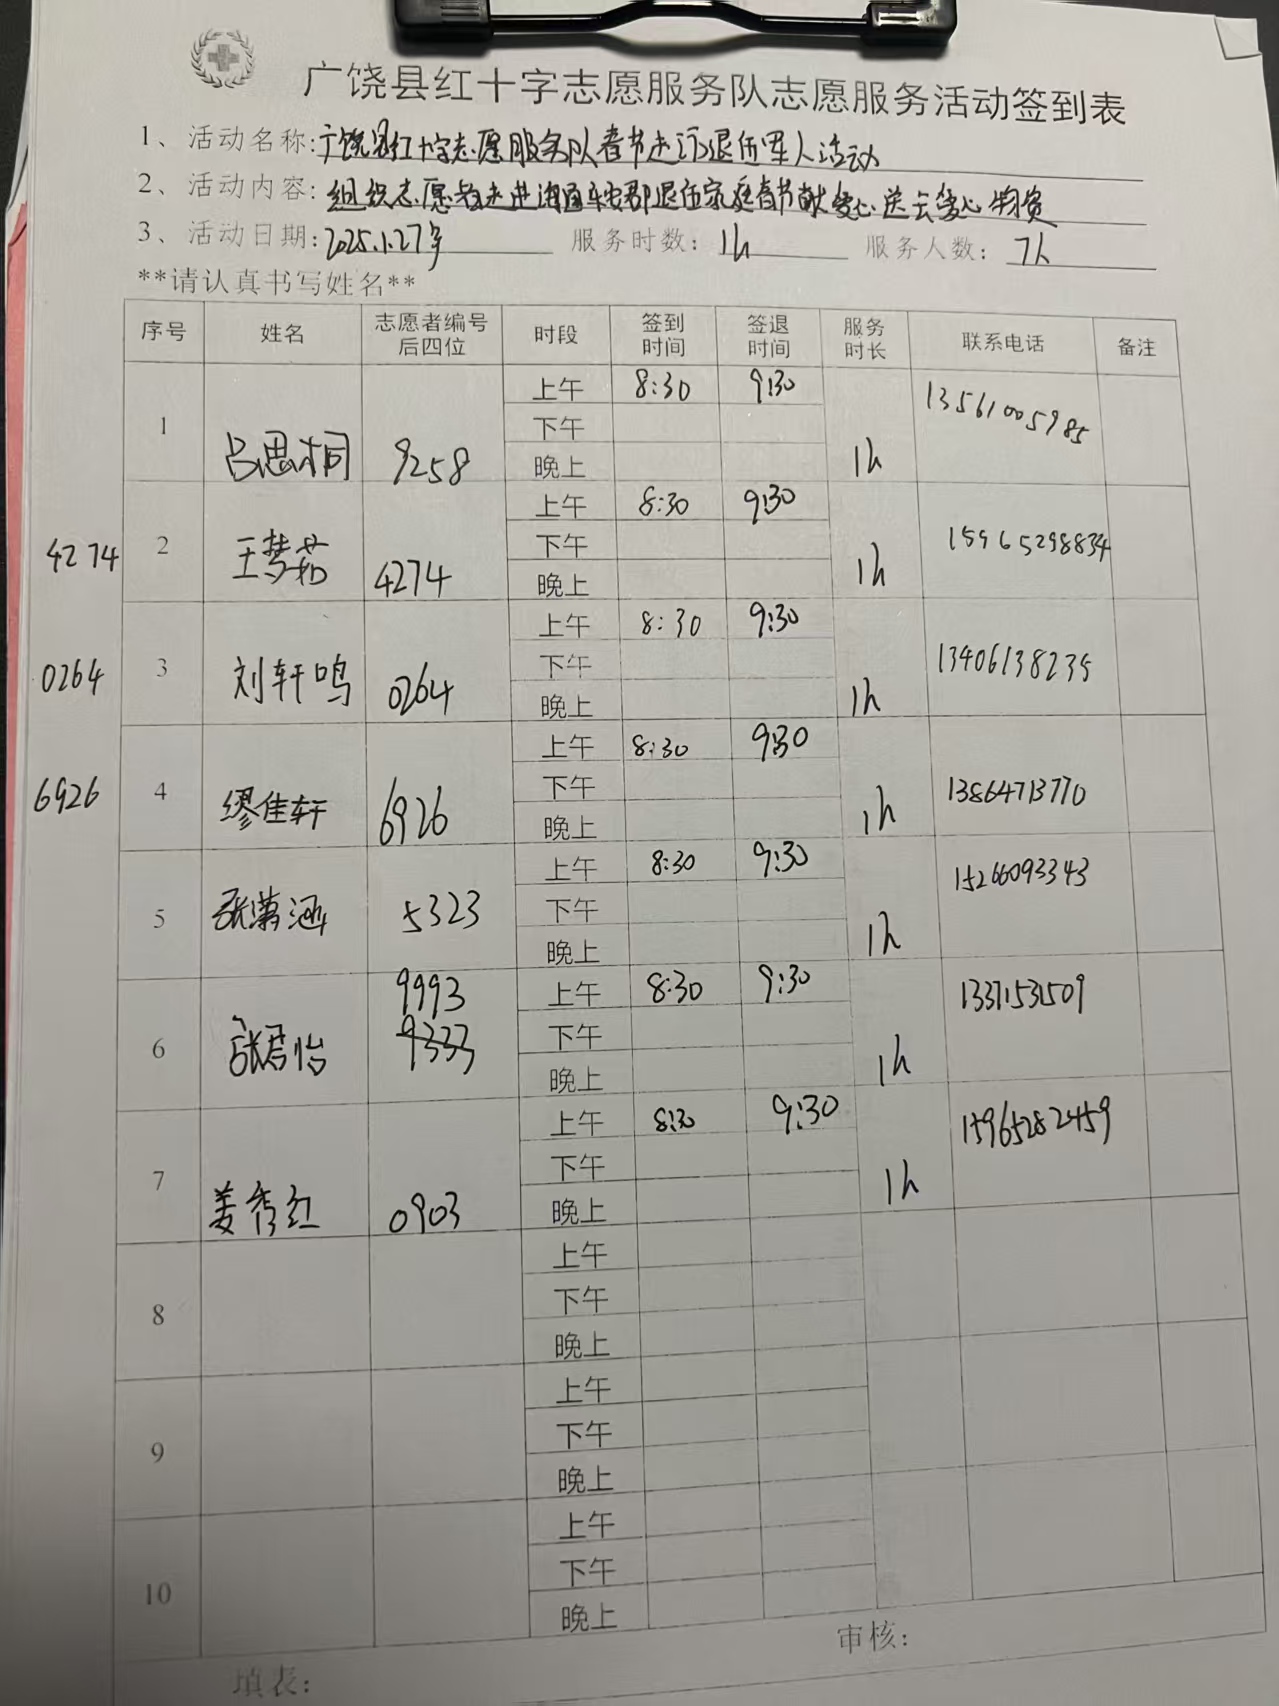 广饶县红十字志愿服务队志愿服务活动签到表
1、活动名称:广饶县红十字志愿服务队春节走访退伍军人活动
2、活动内容:组织志愿者走进 退伍家庭春节献爱心送去爱心物资
3、活动日期:2025.1.27 服务时数:1h 服务人数:7人
**请认真书写姓名**
序号 姓名 志愿者编号后四位 时段 签到时间 签退时间 服务时长 联系电话 备注
1 吕思桐 9258 上午 8:30 9:30 1h 13561005985
下午
晚上
4274 2 王梦茹 4274 上午 8:30 9:30 1h 15965298834
下午
晚上
0264 3 刘轩鸣 0264 上午 8:30 9:30 1h 13406138235
下午
晚上
6926 4 缪佳轩 6926 上午 8:30 9:30 1h 13864713770
下午
晚上
5 张潇涵 5323 上午 8:30 9:30 1h 15266093343
下午
晚上
6 张君怡 9993 9333 上午 8:30 9:30 1h 13371531509
下午
晚上
7 姜秀红 0903 上午 8:30 9:30 1h 15965282459
下午
晚上
8 上午
下午
晚上
9 上午
下午
晚上
10 上午
下午
晚上
填表: 审核: